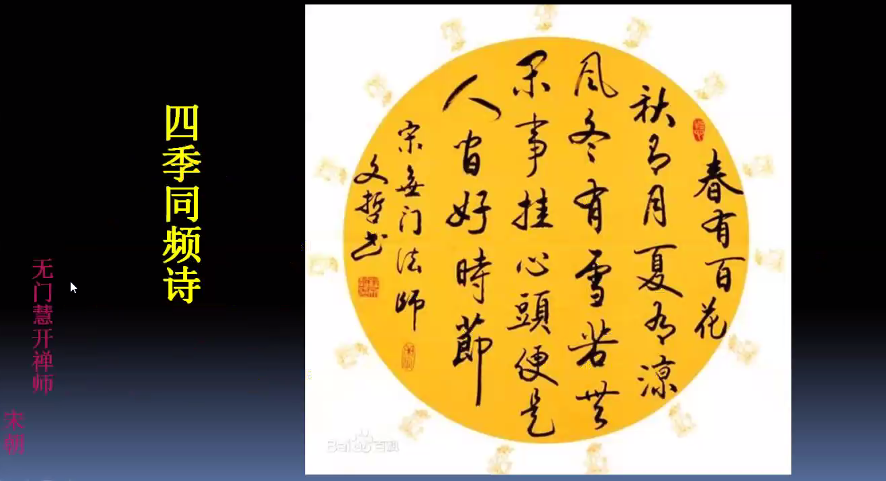 四季同频诗
无门慧开禅师
宋朝
春有百花
秋有月夏有涼
风冬有雪若無
闲事挂心頭便是
人间好時節
宋無门法师
文哲书
Bai百科